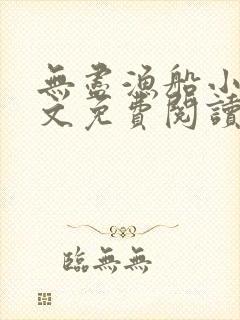 無盡漁船小
文免費閱讀
臨無無